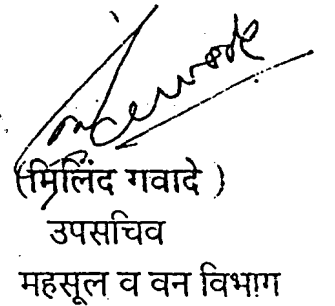 (मिलिंद गवादे )
उपसचिव
महसूल व वन विभाग